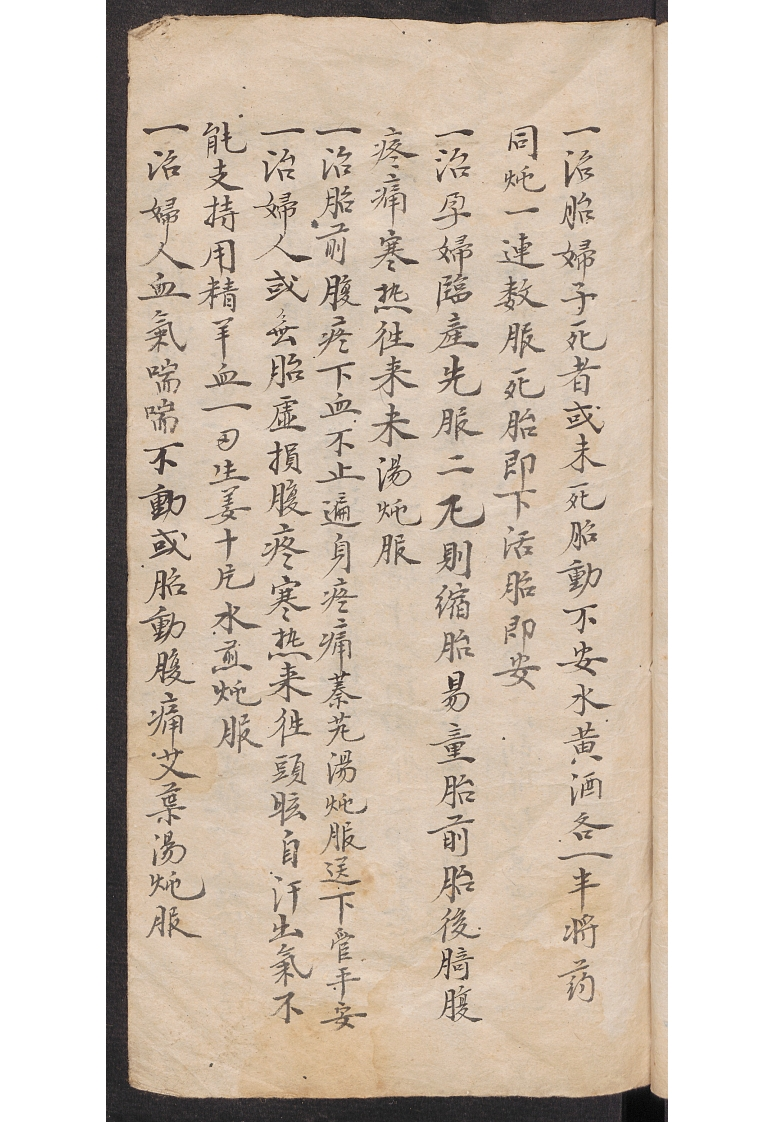 一治胎婦子死者或未死胎動不安水黄酒各一半將药
同炖一連数服死胎即下活胎即安
一治孕婦臨産先服二
則縮胎易童胎前胎後臍腹
疼痛寒热徃来米湯炖服
一治胎前腹疼下血不止遍身疼痛蓁艽湯炖服送下管平安
一治婦人或無胎虚損腹疼寒热来徃頭眩自汗出氣不
能支持用精羊血一
生姜十片水煎炖服
一治婦人血氣喘喘不動或胎動腹痛艾葉湯炖服